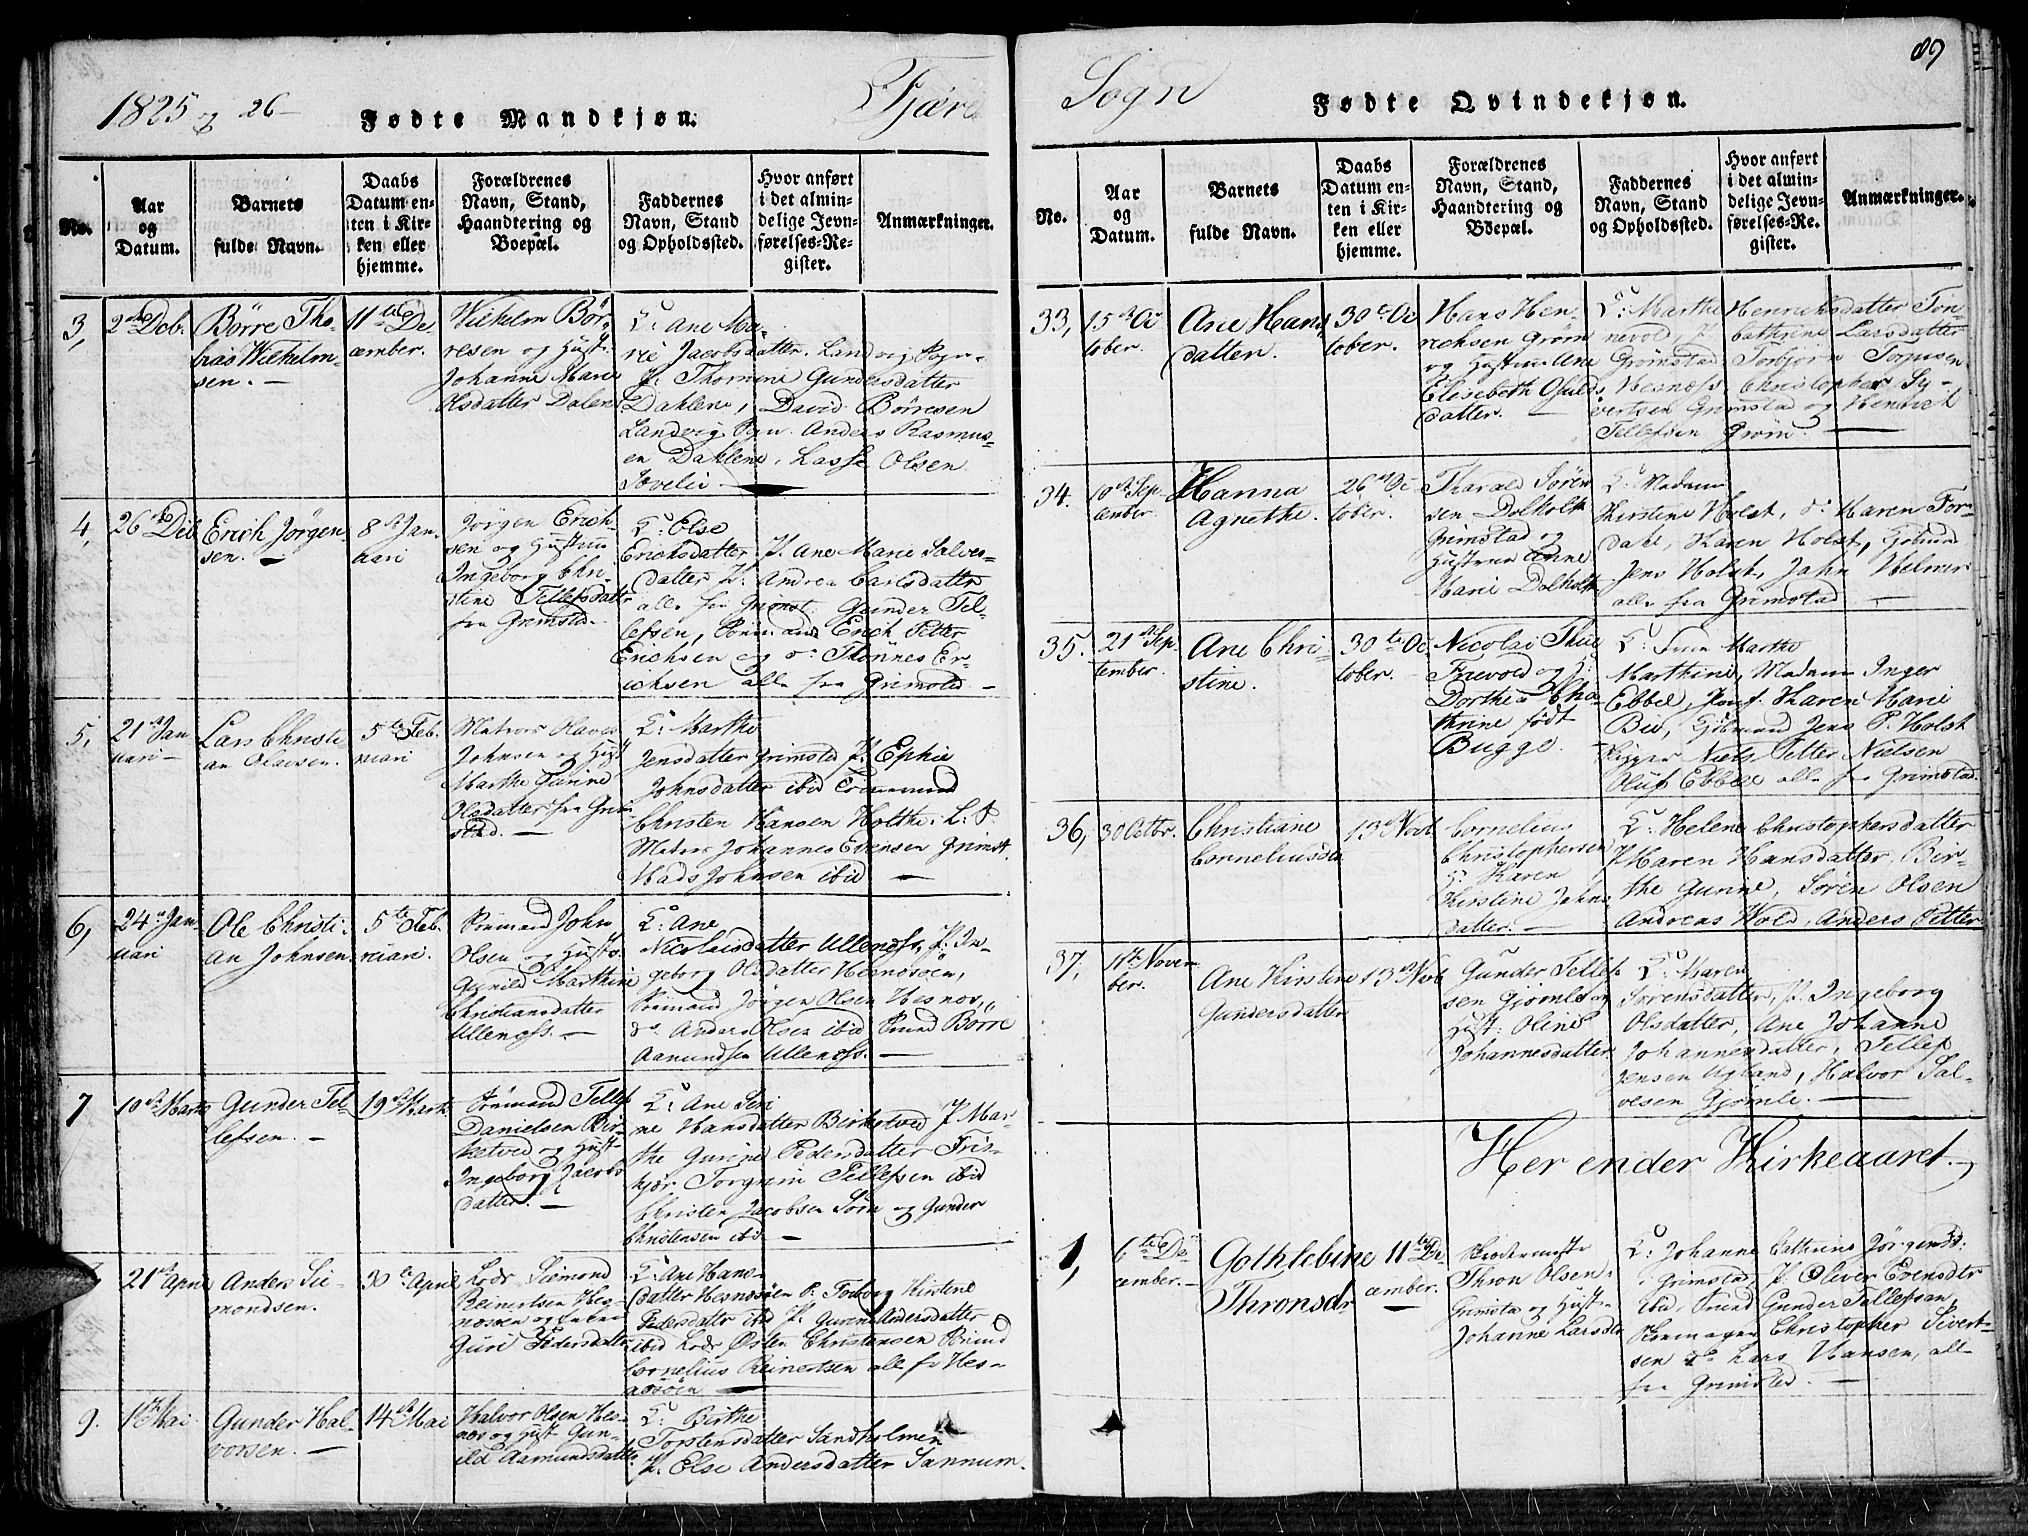 1825 og 26
Fødte Mandkjøn.
Fjære
No.
Aar og Datum.
Barnets fulde Navn.
Daabs Datum enten i Kirken eller hjemme.
Forældrenes Navn, Stand, Haandtering og Boepæl.
Faddernes Navn, Stand og Opholdssted.
Hvor anført i det almindelige Jevnførelses-Register.
Anmærkninger.
3,
2 Deb.
Børre Tho-
bias Wilhelm-
sen.
11te De
cember.
Wilhelm Bør-
resen og Hust.
Johanne Marie
Olsdatter Dalene
Ane Ma-
rie Jacobsdatter, Landvig Sogn.
P. Thomine Gundersdatter
Dahlene, David Børresen
Landvig Sogn. Anders Rasmus-
en Dahlene, Lasse Olsen
4,
26 Deb
Erich Jørgen
sen.
8 Jan
uari
Jørgen Erich-
sen og Hustrue
Ingeborg Chri-
stine Tellefsdatter
fra Grimstad.
Else
Erichsdatter, P. Ane Marie Salves-
datter P. Andrea Carlsdatter
alle fra Grimst. Gunder Tel-
lefsen, Sömand Erich Petter
Erichsen og do Thønnes Er-
ichsen alle fra Grimstad
5,
21 Jan
uari
Lars Christi
an Olavsen.
5te Feb.
ruari
Matros Olaves
Johnsen og Hust
Marthe Gurine
Olsdatter fra Grim
stad.
Marthe
Jensdatter Grimstad P. Ephie
Johnsdatter ibid
Christen Hansen Holthe.
Matros Johannes Evensen Grimst.
Mads Johnsen ibid
6,
24 Jan
uari
Ole Christi-
an Johnsen.
5te Feb.
ruari.
Sömand John
Olsen og Hust.
Gunild Marthine
Christiansdatter
Ullenæss.
Ane
Nicolaisdatter Ullenæss, P. In-
geborg Olsdatter Hesnesøen,
Sömand Jørgen Olsen Hesnes,
do Anders Olsen ibid Börre
Aamundsen Ullenæss.
7
10 Marts
Gunder Tel-
lefsen.
19 Marts
Sömand Tellef
Danielsen Bir-
ketved og Hust
Ingeborg Jacobs
datter.
Ane Seri-
ne Hansdatter Birketved P. Mar-
the Gurine Pedersdatter Fris-
kjær Torgrim Tellefsen ibid
Christen Jacobsen og Gunder
Christensen ibid
21 April
Anders Sie-
mondsen.
30 April
Lods Siemond
Reinertsen Hes-
nesøen og
Guri Pedersdatter
Ane Hans-
datter Hesnesøen P. Kirstene
Pedersdatter ibid P. Guren Andersdatter
ibid Lods Østen Christensen
Cornelius Reinertsen alle fr Hes-
nesøen
9.
1 Mai
Gunder Hal-
vorsen.
14 Mai
Halvor Olsen Hes-
nes og Hust Gun-
ild Aamundsdatter
Birthe
Torstensdatter Sandholmen
P. Else Andersdatter Sannum.
Sogn
Fødte Qvindekjøn.
89
No.
Aar og Datum.
Barnets fulde Navn.
Daabs Datum enten i Kirken eller hjemme.
Forældrenes Navn, Stand, Haandtering og Boepæl.
Faddernes Navn, Stand og Opholdssted.
Hvor anført i det almindelige Jevnførelses-Register.
Anmærkninger.
33,
15 Oc
tober.
Ane Hans
datter.
30te Oc
tober.
Hans Hen-
richsen Grøm
og Hustrue Ane
Elisebeth Osulds
datter.
Marthe Henrichsdatter Ton-
nevold, P. Cathrine Larsdatter
Grömstad Torbjørn Torjusen
Hesnæss, Christopher Sy-
vertsen Grimstad og Henrich
Tellefsen Grøm.
34.
10 Sep-
tember
Hanna
Agnethe.
26 Oc
tober.
Tharald Sören
sen Dolholt
Grimstad og
Hustrue Anne
Marie Dolholt
Madam
Kirstine Holst, do Maren For-
dahl, Karen Holst,
Jens Holst, John Helmer
alle fra Grimstad
35.
21 Sep
tember
Ane Chri-
stine.
30te Oc
tober.
Nicolai Thue
Frevold og H:
Dorthea Cha-
thrine født
Bugge.
Marthe
Marthine, Madam Inger
Ebbel, Jomf. Karen Marie
Bie, Jens P. Holst
Niels Petter Nielsen
Oluf Ebbel alle fra Grimstad.
36,
30 Octbr.
Christiane
Corneliusdr
13 Novb
Cornelius
Christophersen
H. Karen
Kirstine Johns
datter.
Helene Christophersdatter
P. Maren Hansdatter, Bir-
the Gurine, Søren Olsen
Andreas Wold, Anders Petter
37,
11te Novem
ber.
Ane Kirstine
Gundersdatter
13 Novb
Gunder Tellef
sen Gjömle og
Hust: Oline
Johannesdatter
Maren
Sørensdatter, P. Ingeborg
Olsdatter, Ane Johanne
Johannesdatter, Tellef
Jensen Ugland, Halvor Sal-
vesen Gjömle.
Her ender Kirkeaaret.
1,
6te De
cember.
Gothlebine
Thronsdr
11te De
cember.
Thron Olsen
Grimsta og Hust
Johanne Larsdtr
Johanne Cathrine Jörgensd:
i Grimstad, P. Oliver Evensdtr
ibid, Gunder Tellefsen,
Skomager Christopher Sivert-
sen do Lars Hansen, alle
fra Grimstad.